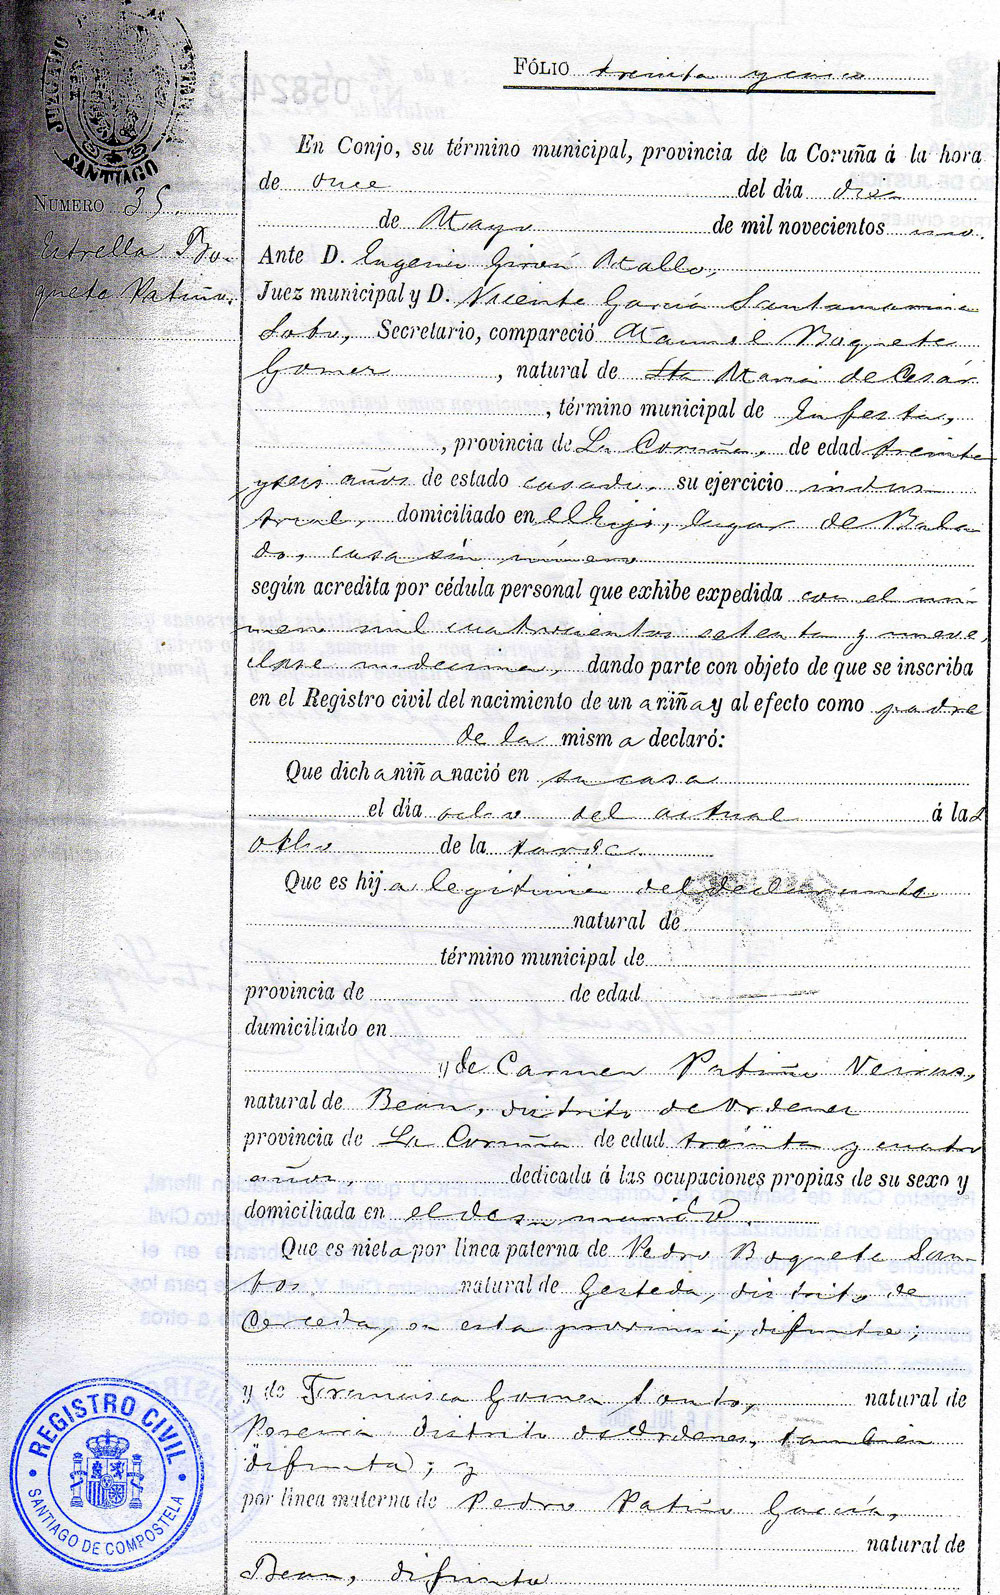 JUZGADO
SANTIAGO
0582423
FÓLIO treinta y cinco
En Conjo, su término municipal, provincia de la Coruña á la hora
de once del día diez
de Mayo de mil novecientos uno.
NÚMERO 35.
Estrella Bo-
quete Patiño.
Ante D. Eugenio Girón Mallo,
Juez municipal y D. Vicente García Santamarina
Soto, Secretario, compareció Manuel Boquete
Gomez, natural de Sta Maria de Cesár
, término municipal de Enfesta,
, provincia de La Coruña, de edad treinta
y seis años de estado casado, su ejercicio indus
trial, domiciliado en el lugar de
do, casa sin número
según acredita por cédula personal que exhibe expedida con el nú-
mero mil cuatrocientos setenta y nueve,
clase undecima, dando parte con objeto de que se inscriba
en el Registro civil del nacimiento de un a niña y al efecto como padre
de la mism a declaró:
Que dich a niñ a nació en su casa
el día ocho del actual á las
ocho de la tarde.
Que es hij a legitima del declarante
natural de
término municipal de
provincia de de edad
dumiciliado en
y de Carmen Patiño Veiras,
natural de Bean, distrito de Ordenes
provincia de La Coruña de edad treinta y cuatro
años, dedicada á las ocupaciones propias de su sexo y
domiciliada en el de su marido.
Que es nieta por línea paterna de Pedro Boquete San-
tos, natural de Gesteda, distrito de
Cerceda, en esta provincia, difunto;
y de Francisca Gomez Souto, natural de
Pereira distrito de Ordenes, tambien
difunta; y
por línea materna de Pedro Patiño García,
natural de
Bean, difunto
REGISTRO CIVIL
SANTIAGO DE COMPOSTELA